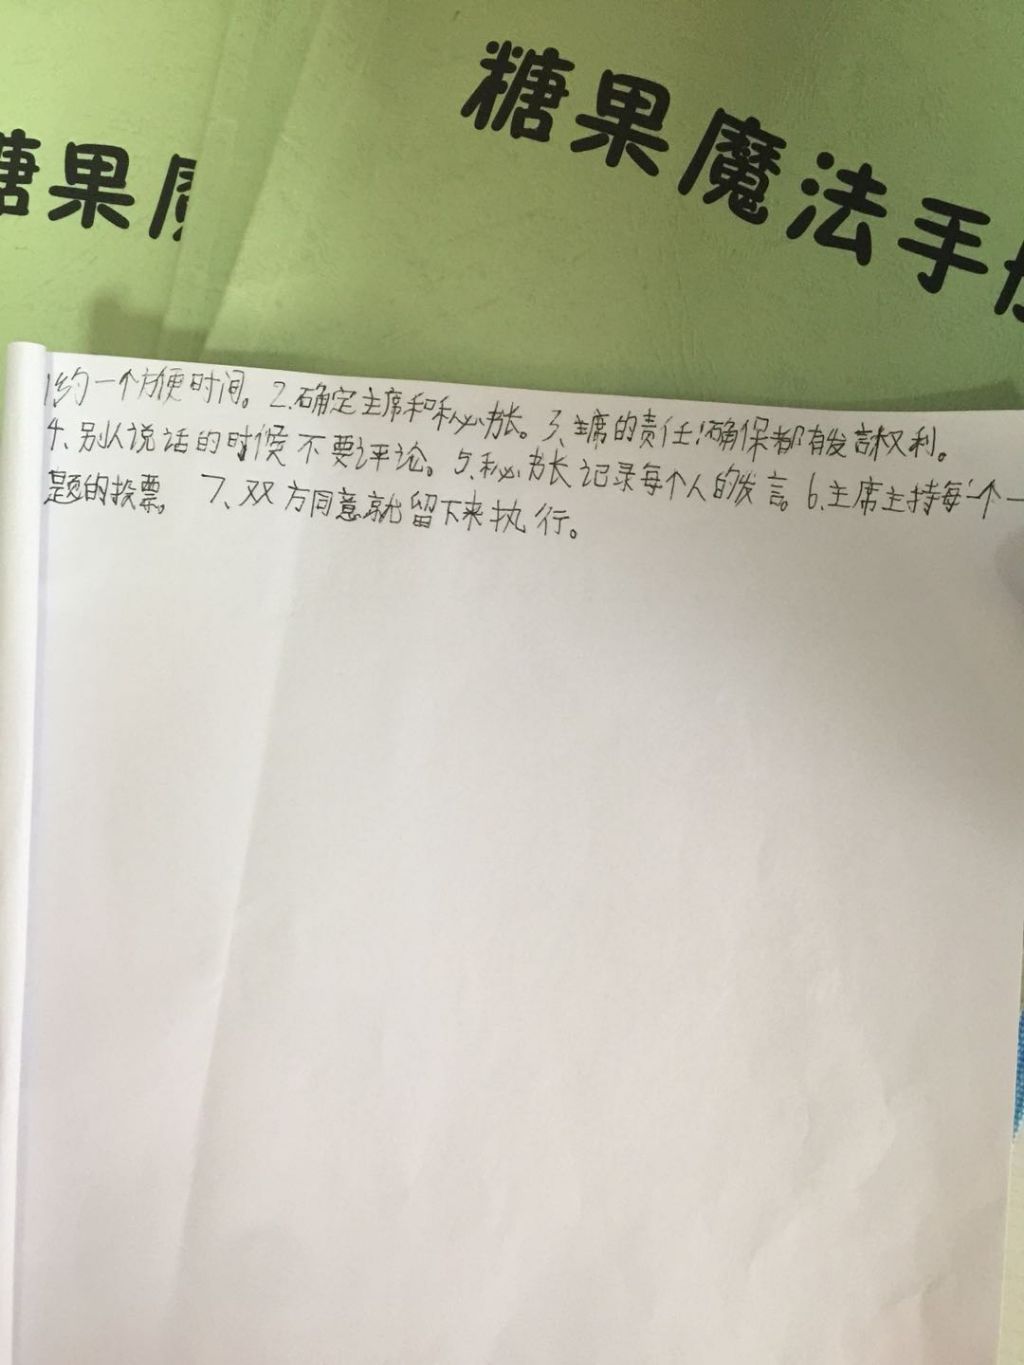 糖果魔法手
糖果
1、约一个方便时间。2、确定主席和秘书长。3、主席的责任：确保都有发言权利。
4、别人说话的时候不要评论。5、秘书长记录每个人的发言。6、主席主持每个一
题的投票。 7、双方同意就留下来执行。